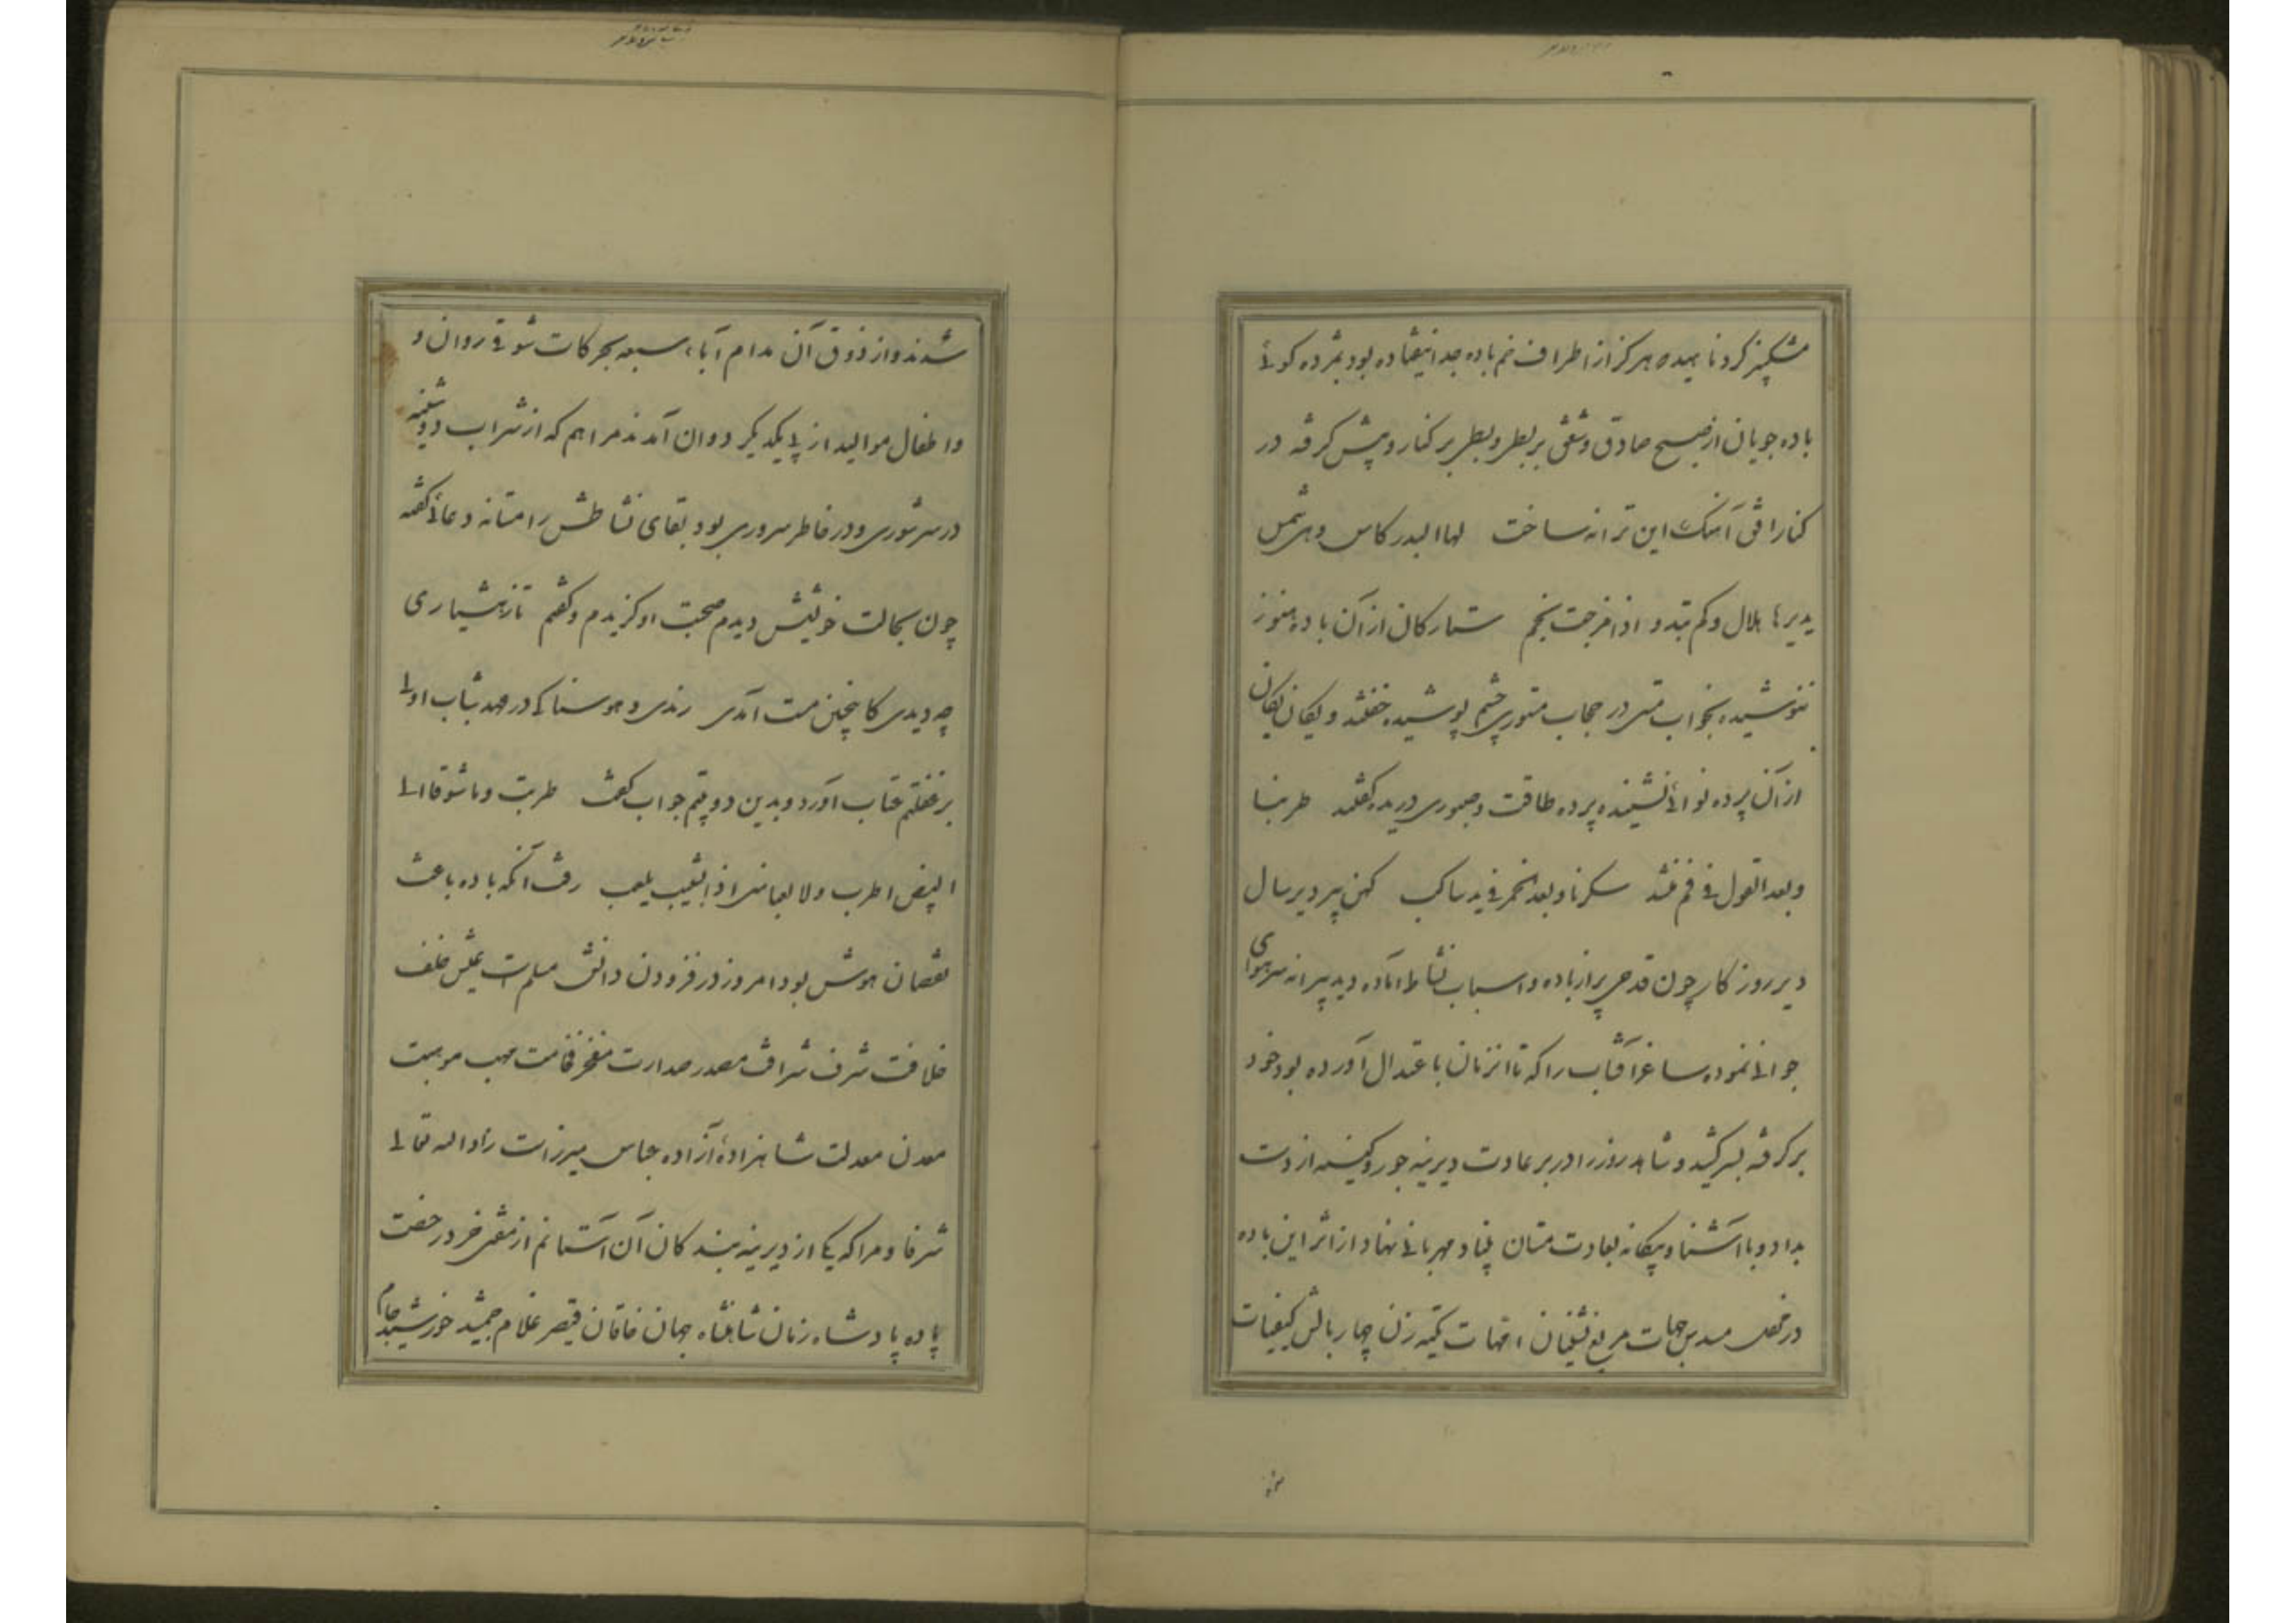 مشکبیز کرد ناهید که هرگز از اطراف خم باده جدا نیفتاده بود بمژده گوئی
باده جویان از صبح صادق وشقی بر بط و بطی بر کنار و پیش گرفته در
کنار افق آهنگ این ترانه ساخت لها البدر کاس وهی شمس
یدیرها هلال وکم تبدو اذا مزجت نجم ستارگان از آن باده هنوز
ننوشیده بخواب مستی در حجاب مستوری چشم پوشیده خفتند و یکان یکان
از آن پرده نوائی نشنیده پرده طاقت و صبوری دریده گفتند طربنا
وبعد القول فی فم منشد سکرنا وبعد الخمر فی ید ساکب کهن پیر دیر سال
دیر روزگار چون قدحی پر از باده و اسباب نشاط آماده دید پیرانه سر هوای
جوانی نموده ساغر آفتاب را که تا آنزمان باعتدال آورده بود خود
برگرفته بسر کشید و شاهد روز را در بر عادت دیرینه جور و کینه از دست
بداد و با آشنا و بیگانه بعادت مستان بنیاد مهربانی نهاد از اثر این باده
در محفل مسدس جهات مربع نشینان امهات تکیه زن چهار بالش کیفیات
شدند و از ذوق آن مدام آباء سبعه بحرکات شوقی روان و
و اطفال موالید از پی یکدیگر دوان آمدند مرا هم که از شراب دوشینه
در سر شوری و در خاطر سروری بود بقای نشاطش را مستانه دعائی گفته
چون بحالت خویشش دیدم صحبت او گزیدم و گفتم تا ز هشیاری
چه دیدی کاینچنین مست آمدی رندی و هوسناکی در عهد شباب اولی
بر غفلتم عتاب آورد و بدین دو بیتم جواب گفت طربت وما شوقا الی
البیض اطرب ولا لعبا منی اذا الشیب یلعب رفت آنکه باده باعث
نقصان هوش بود امروز در فزودن دانش مسلم است عیش خلف
خلافت شرف شرافت مصدر صدارت مفخر فخامت مهب موهبت
معدن معدلت شاهزادهٔ آزاده عباس میرزاست زاد الله تعالی
شرفا و مرا که یکی از دیرینه بندگان آن آستانم از مقیمی خر در حضرت
پاده پادشاه زمان شاهنشاه جهان خاقان قیصر غلام جمشید خورشید جام